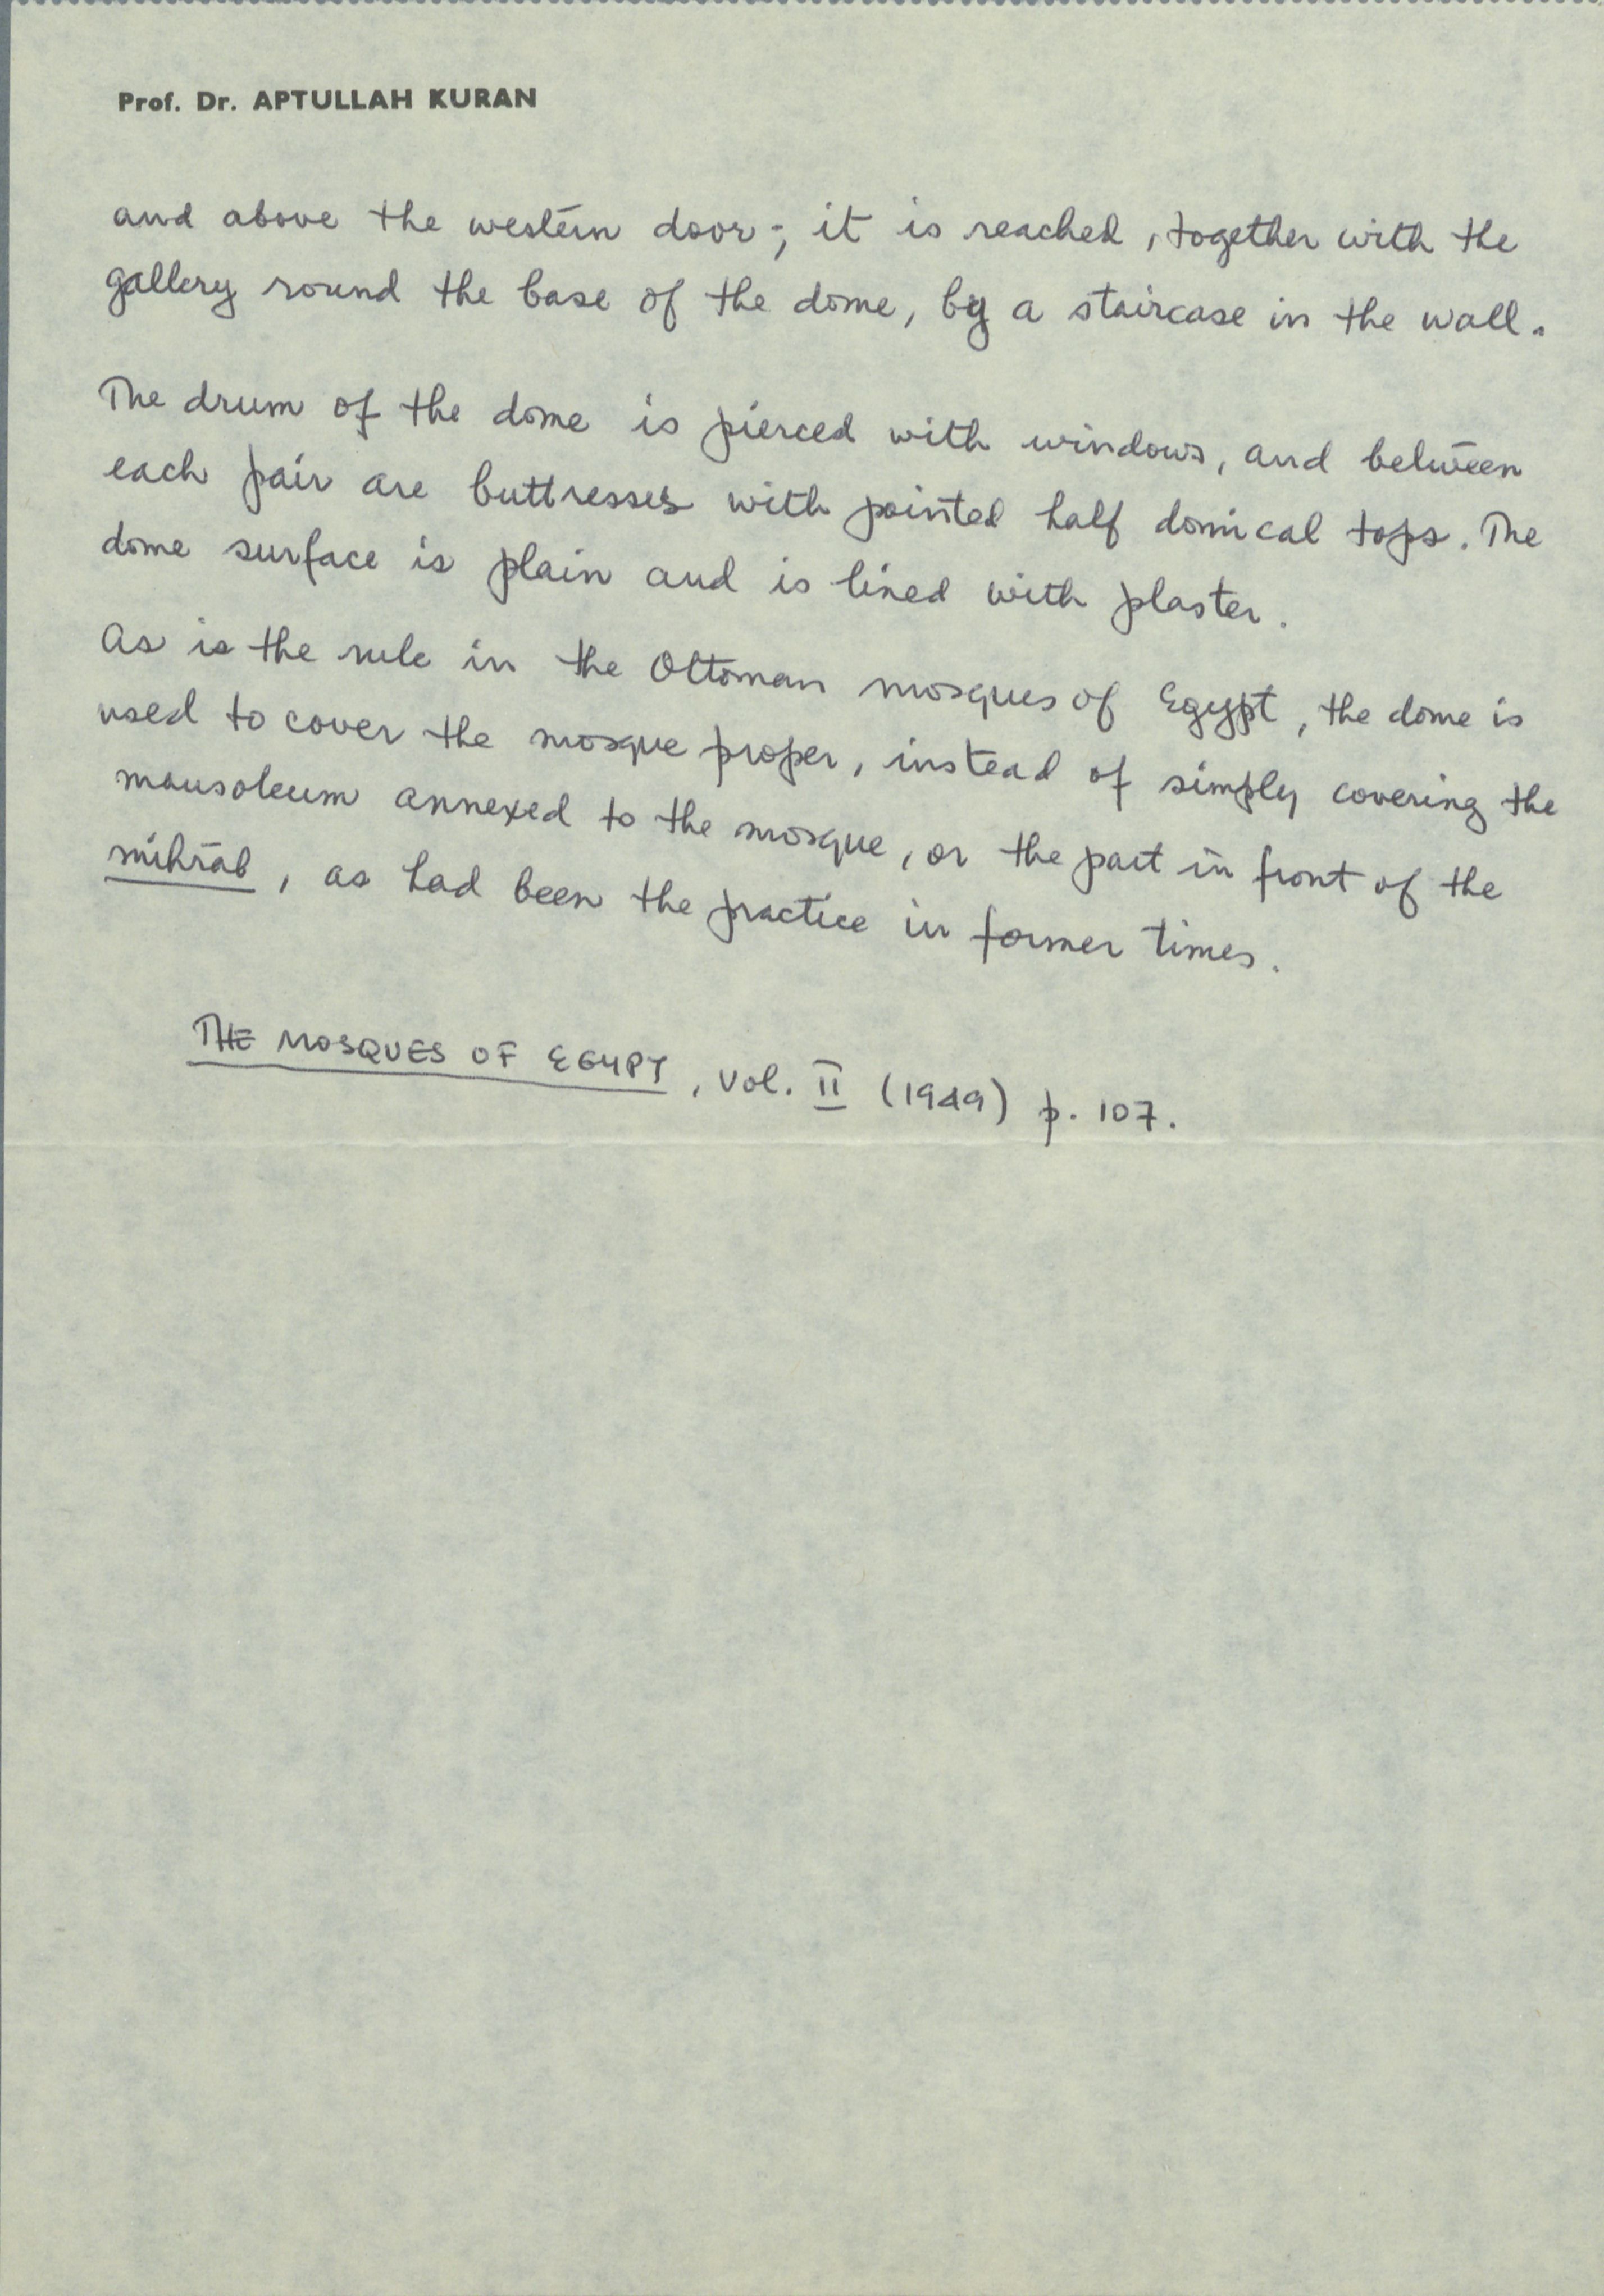 Prof. Dr. APTULLAH KURAN
and above the western door; it is reached, together with the
gallery round the base of the dome, by a staircase in the wall.
The drum of the dome is pierced with windows, and between
each pair are buttresses with pointed half domical tops. The
dome surface is plain and is lined with plaster.
As is the rule in the Ottoman mosques of Egypt, the dome is
used to cover the mosque proper, instead of simply covering the
mausoleum annexed to the mosque, or the part in front of the
mihrāb, as had been the practice in former times.
THE MOSQUES OF EGYPT, Vol. II (1949) p. 107.